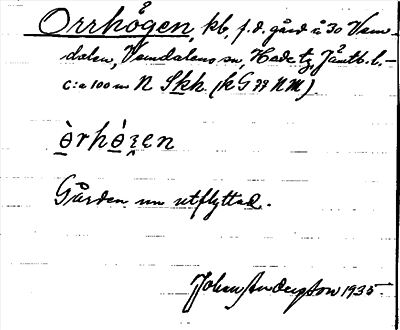 Orrhågen, kb, f.d. gård å 30 Vem-
dalen, Vemdalens sn, Hede tg, Jämtl. l. —
c:a 100 m N Skh. (k G 79 NM)
òrhògen
Gården nu utflyttad.
Johan Anderson 1935